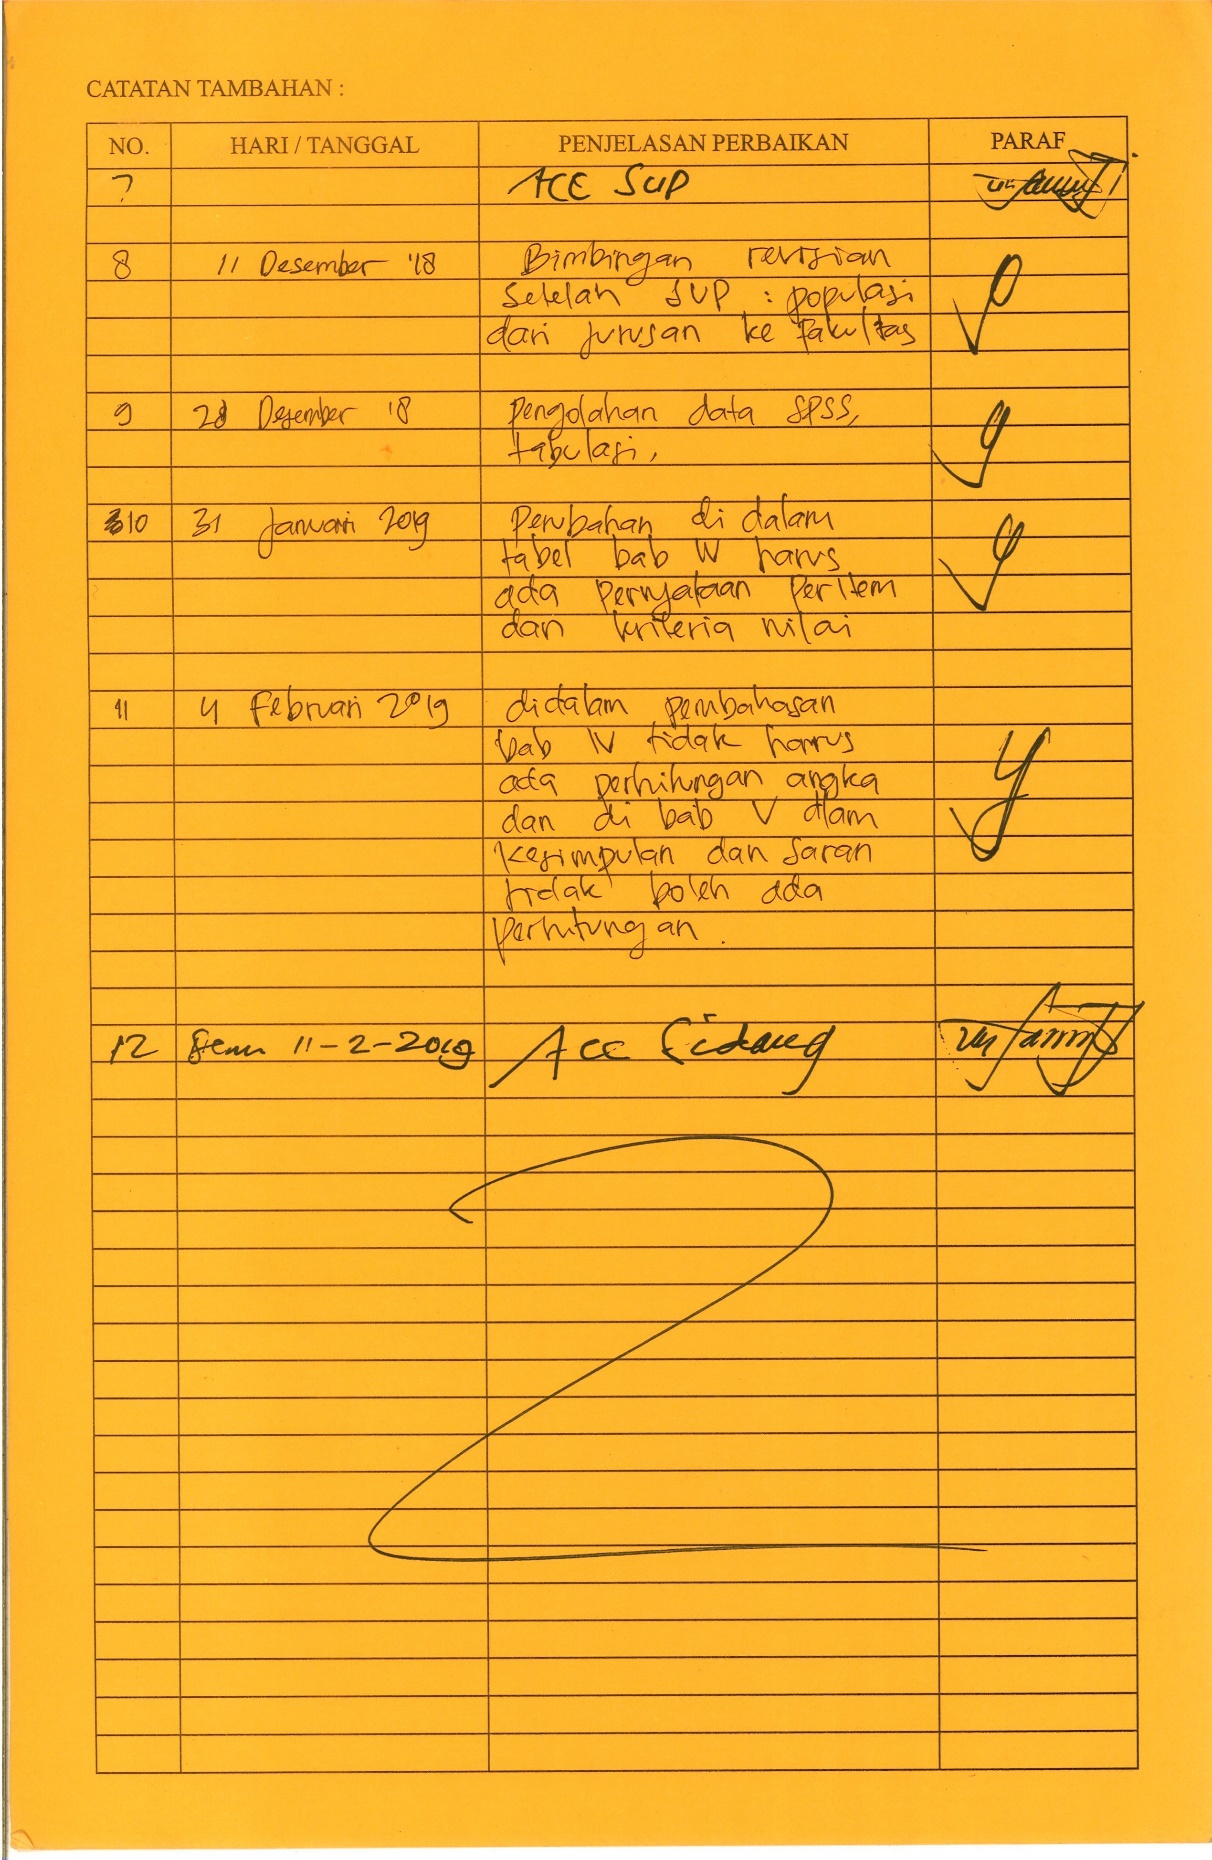 CATATAN TAMBAHAN :
NO. HARI / TANGGAL PENJELASAN PERBAIKAN PARAF
7 ACC SUP
8 11 Desember '18 Bimbingan revisian
Setelah SUP : populasi
dari jurusan ke Fakultas
9 28 Desember '18 Pengolahan data SPSS,
tabulasi,
10 31 Januari 2019 Perubahan di dalam
tabel bab IV harus
ada Pernyataan PerItem
dan kriteria nilai
11 4 Februari 2019 didalam pembahasan
bab IV tidak harus
ada perhitungan angka
dan di bab V dlam
kesimpulan dan saran
tidak boleh ada
perhitungan .
12 11-2-2019 Acc Sidang